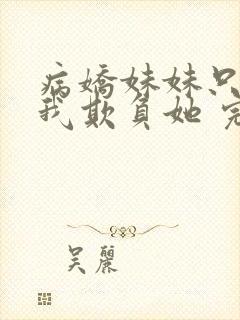 病嬌妹妹只
我欺負她 完
吴麗